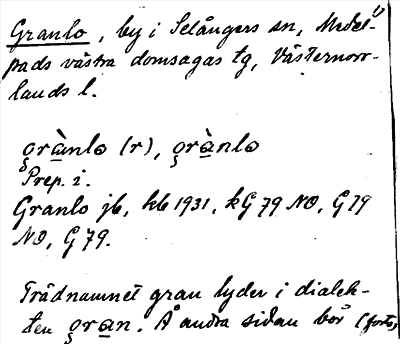 Granlo, by i Selångers sn, Medel-
pads västra domsagas tg, Västernorr-
lands l.
grànlo (r), grànlo
Prep. i.
Granlo jb, kb 1931, kG 79 NO, G 79
NO, G 79.
Trädnamnet gran lyder i dialek-
ten gran. Å andra sidan bör (forts.